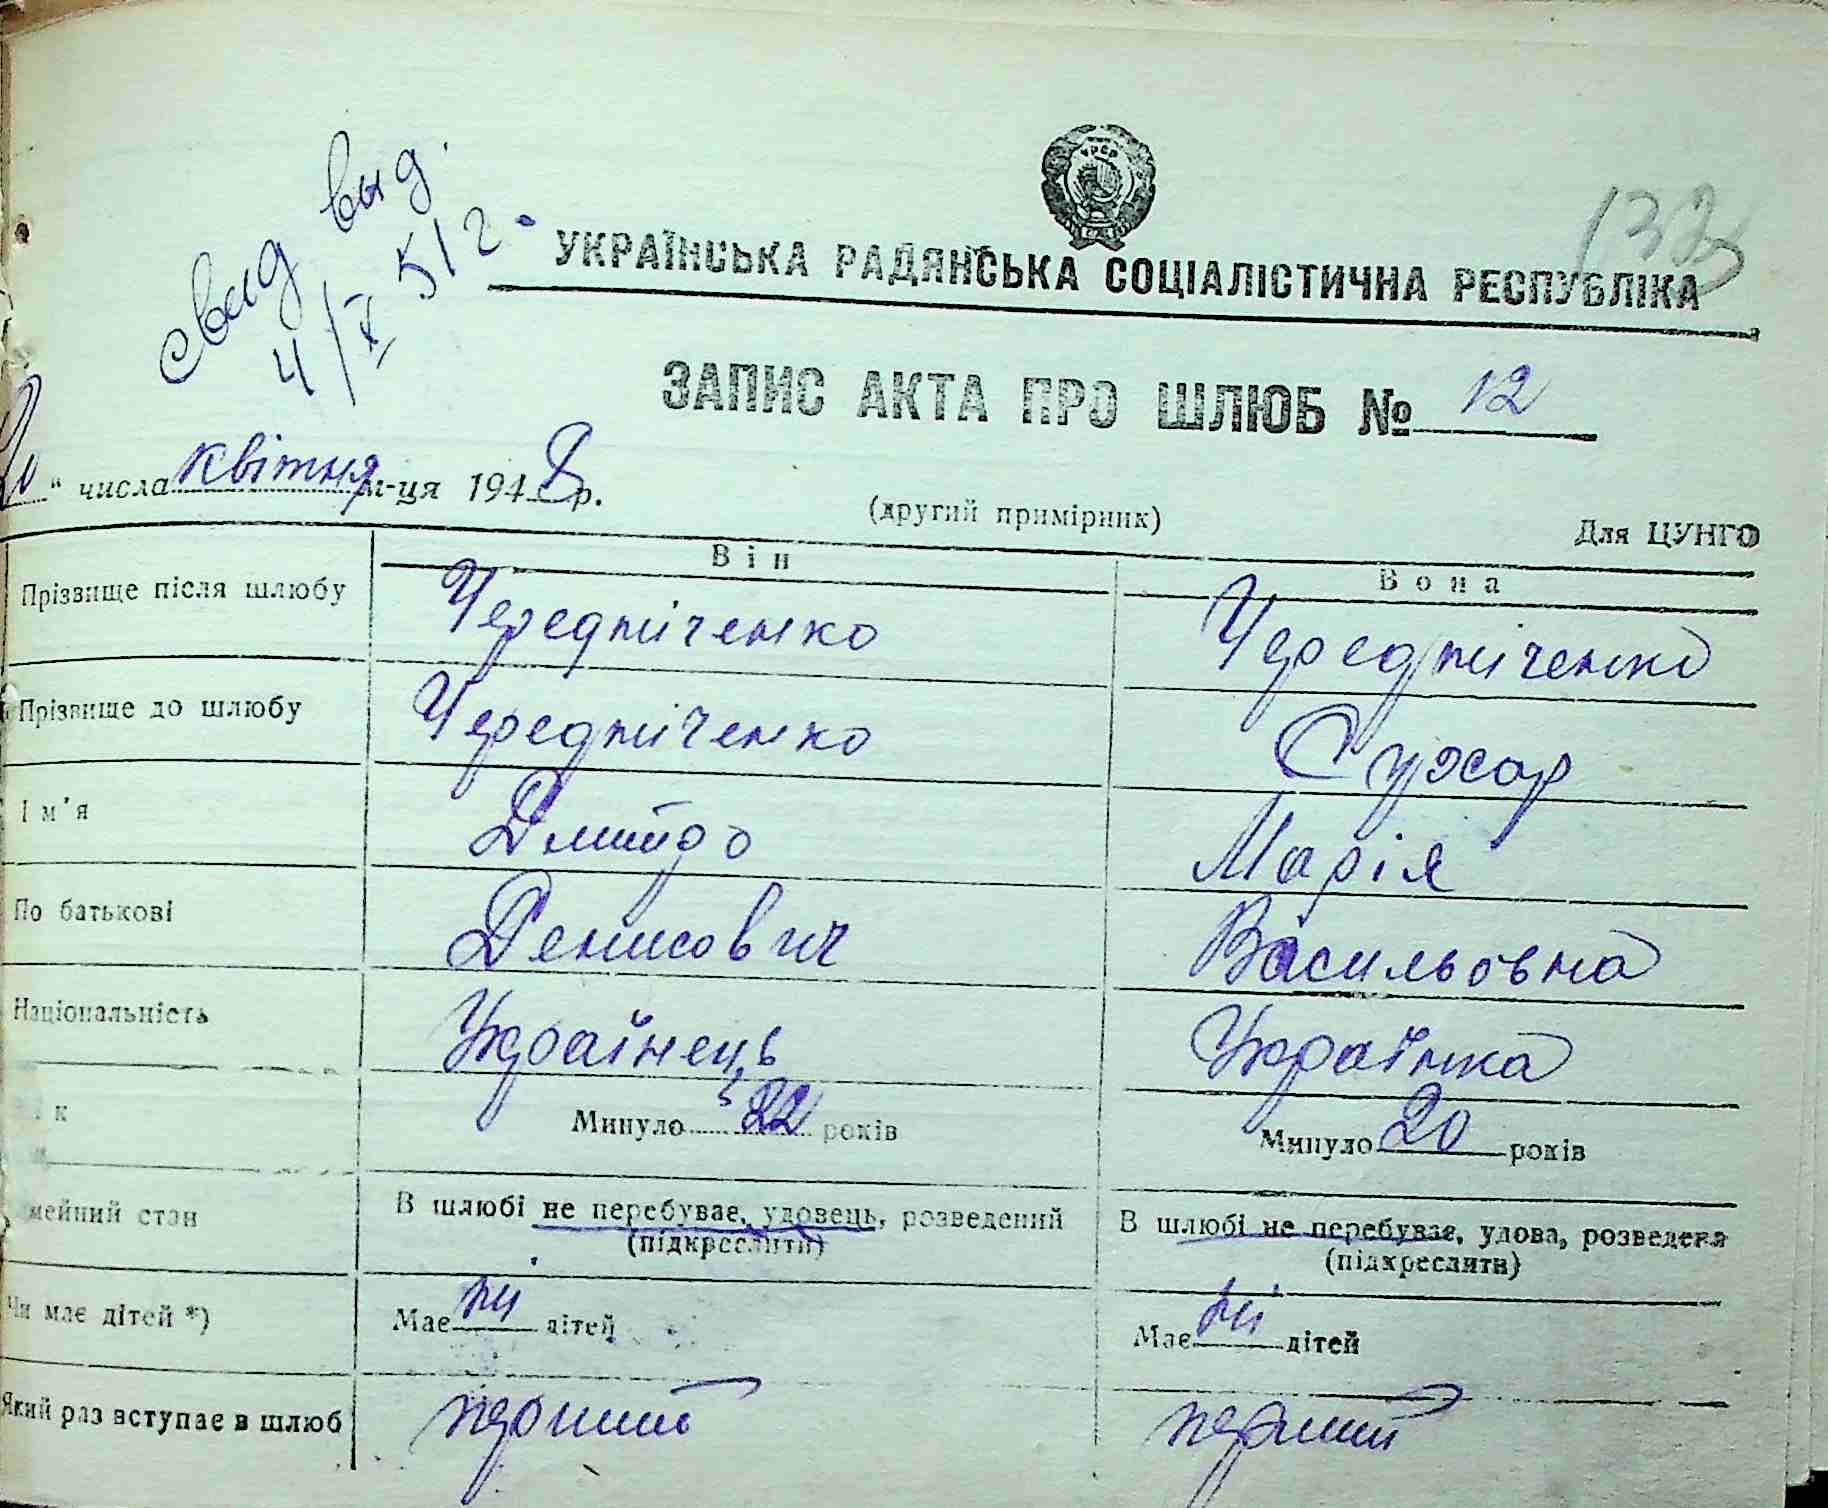 свид выд.
4/X 51 г.
УРСР
132
УКРАЇНСЬКА РАДЯНСЬКА СОЦІАЛІСТИЧНА РЕСПУБЛІКА
ЗАПИС АКТА ПРО ШЛЮБ № 12
" числа квітня м-ця 1948 р.
(другий примірник)
Для ЦУНГО
Він Вона
Прізвище після шлюбу Чередніченко Чередніченко
Прізвище до шлюбу Чередніченко Сухар
Ім'я Дмитро Марія
По батькові Денисович Васильовна
Національність Українець Українка
Минуло 22 років Минуло 20 років
мейний стан В шлюбі не перебуває, удовець, розведений В шлюбі не перебуває, удова, розведена
(підкреслити) (підкреслити)
Чи має дітей *) Має ні дітей Має ні дітей
Який раз вступає в шлюб перший перший